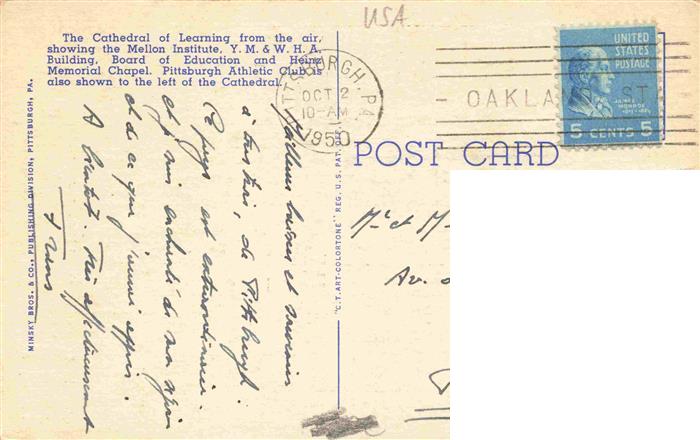 The Cathedral of Learning from the air,
showing the Mellon Institute, Y. M. & W. H. A.
Building, Board of Education and Heinz
Memorial Chapel. Pittsburgh Athletic Club is
also shown to the left of the Cathedral.
USA
PITTSBURGH, PA.
OCT 2
10-AM
1950
OAKLAND ST
UNITED
STATES
POSTAGE
JAMES
MONROE
5 CENTS 5
POST CARD
MINSKY BROS. & CO., PUBLISHING DIVISION, PITTSBURGH, PA.
"C. T. ART-COLORTONE" REG. U. S. PAT. OFF.
baisers et
à tous trois, de Pittsburgh.
Ce pays est extraordinaire.
et je suis enchanté de
et de ce que j'aurai appris.
A bientôt. Très affectueusement
Mr et M
Av.